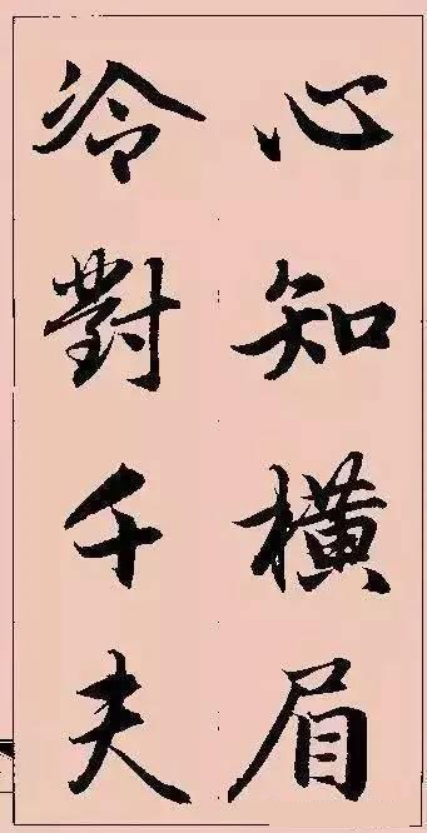 心知橫眉
冷對千夫